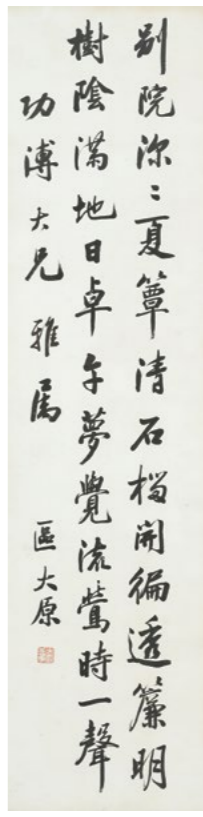 別院深〻夏簟清石榴開徧透簾明
樹陰滿地日卓午夢覺流鶯時一聲
功溥大兄雅屬 區大原